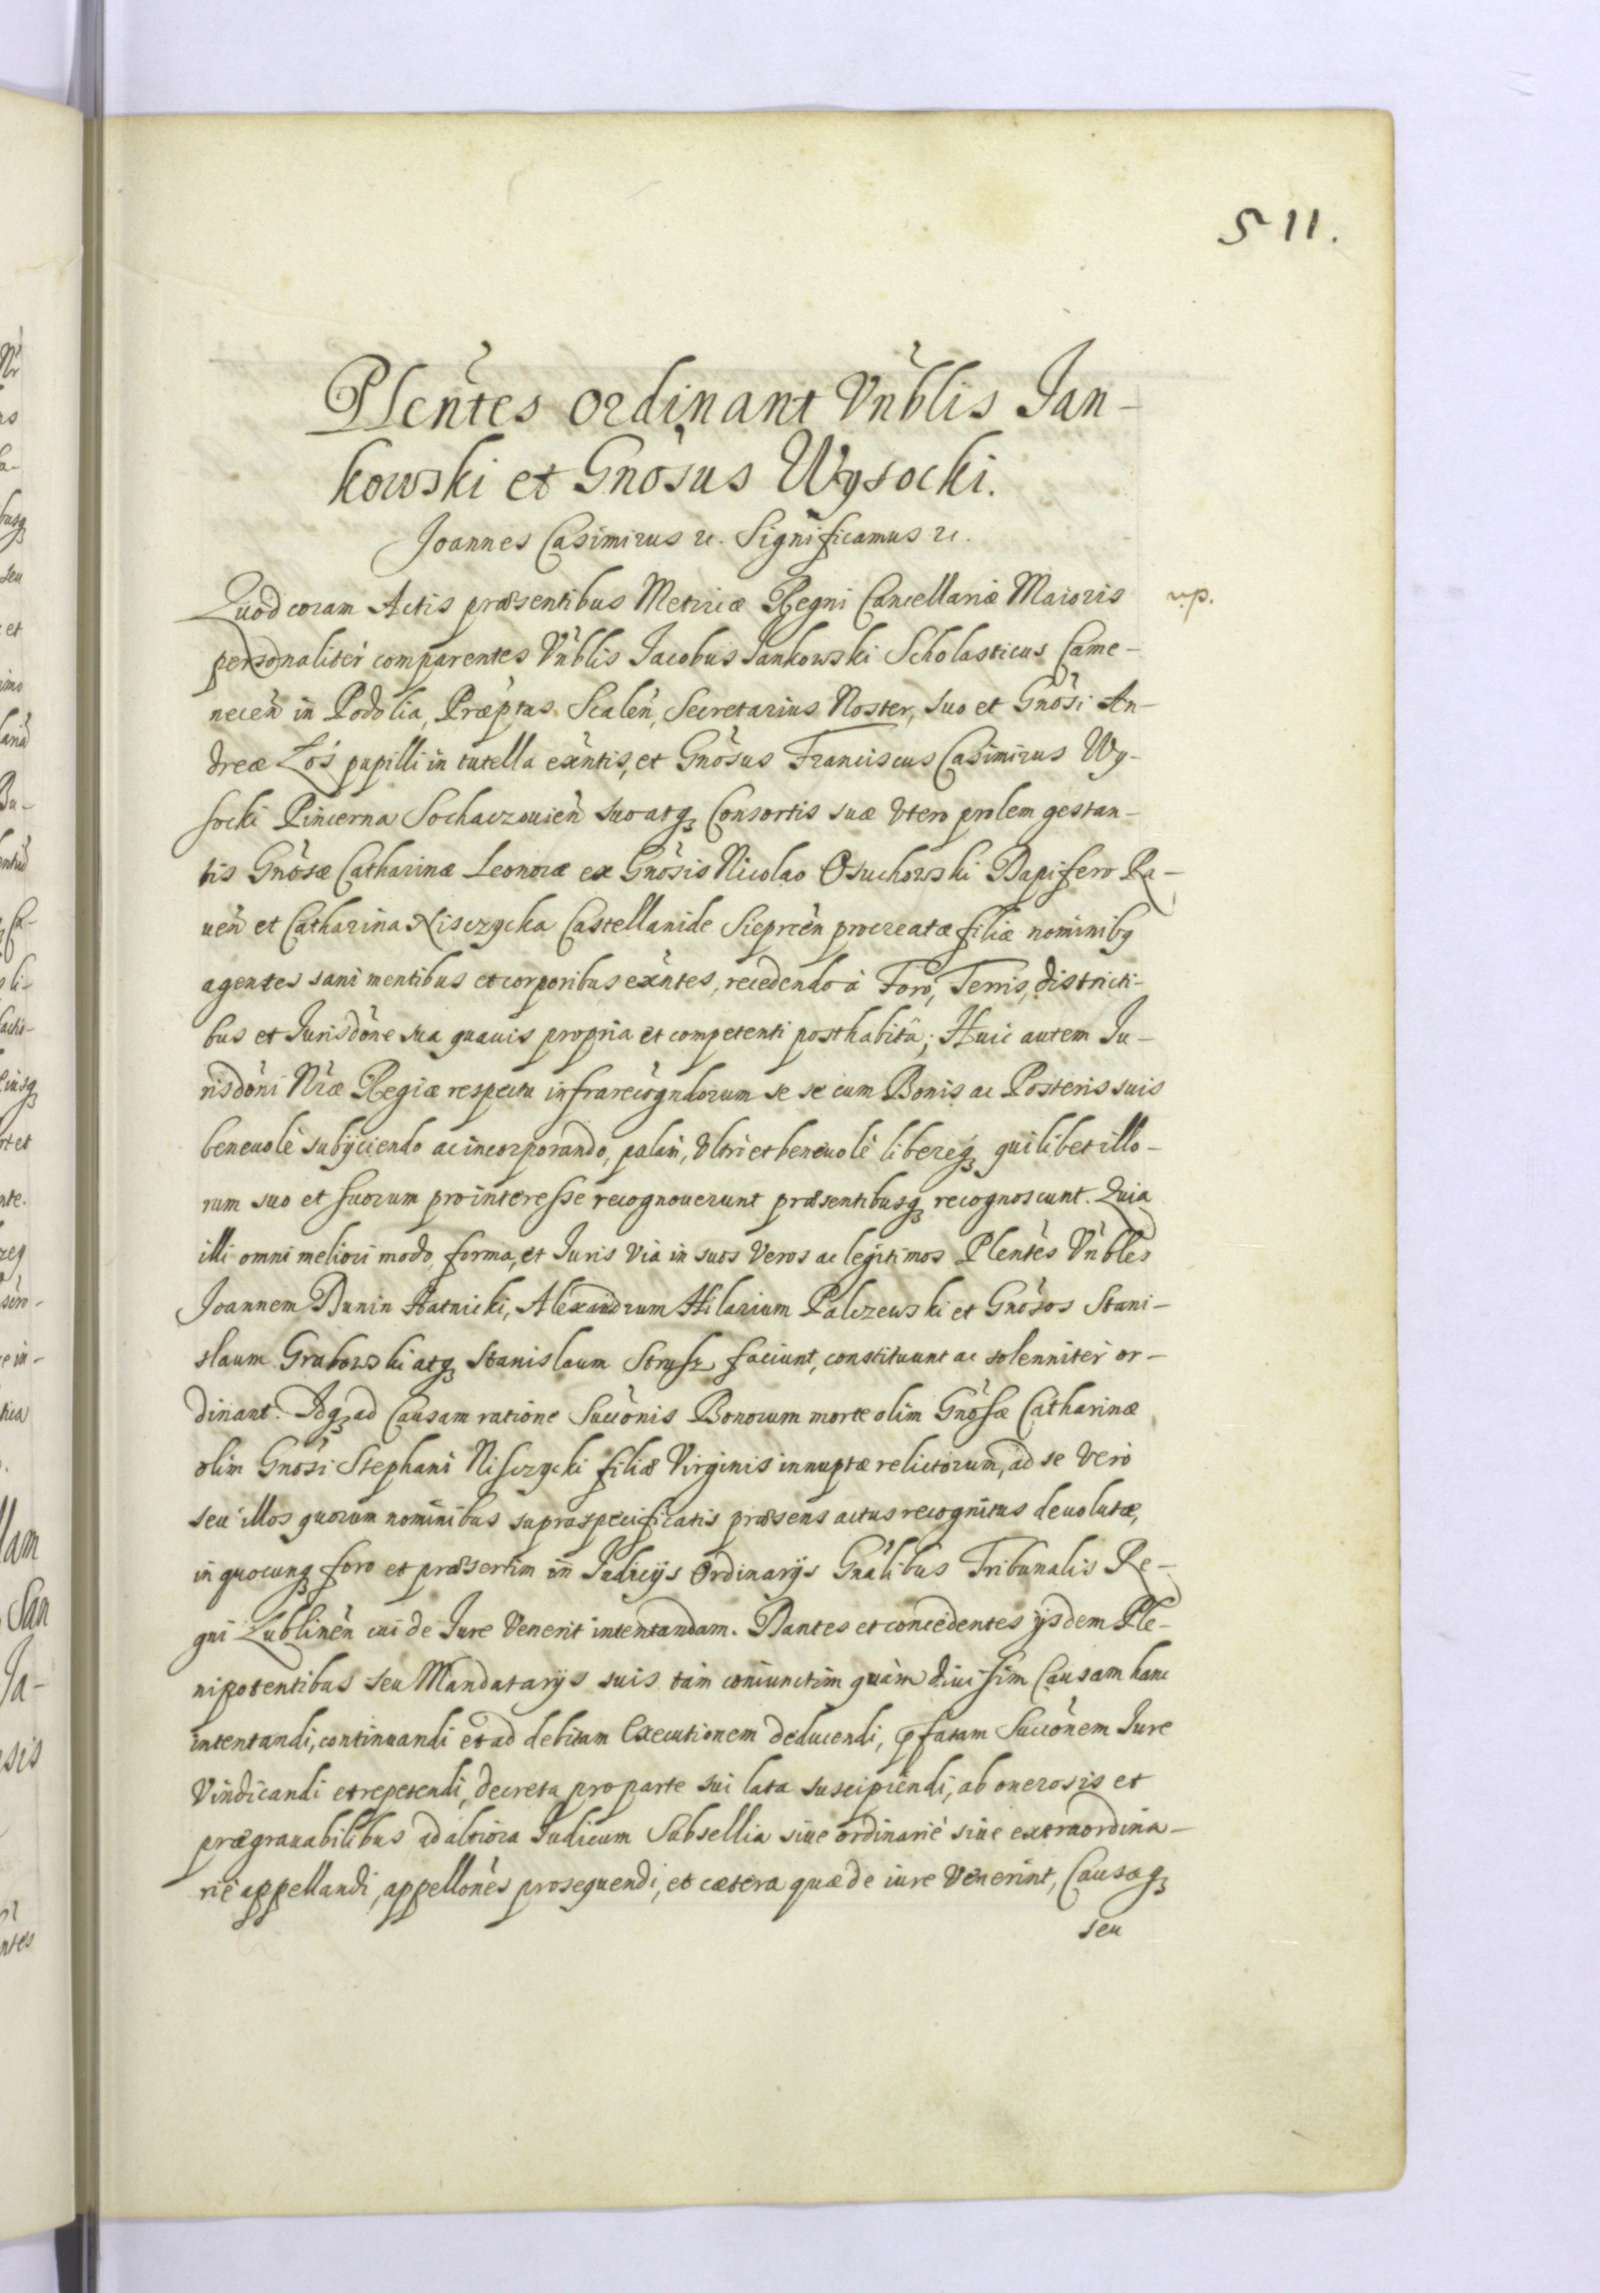 511.
Plentes ordinant Vnblis Jan-
kowski et Gnosus Wysocki.
Joannes Casimirus etc. Significamus etc.
Quod coram Actis præsentibus Metricæ Regni Cancellariæ Maioris
personaliter comparentes Vnblis Jacobus Jankowski Scholasticus Came-
necen in Podolia, Præptus Scalen, Secretarius Noster, suo et Gnosi An-
dreæ Łos pupilli in tutella exntis, et Gnosus Franciscus Casimirus Wy-
socki Pincerna Sochaczouien suo atq Consortis suæ Vtero prolem gestan-
tis Gnosæ Catharinæ Leonoræ ex Gnosis Nicolao Osuchowski Dapifero Ra-
uen et Catharina Nisczycka Castellanide Sieprcen procreatæ filiæ nominibq
agentes sani mentibus et corporibus exntes, recedendo à Foro, Terris, districti-
bus et Jurisdone sua quauis propria et competenti posthabitâ; Huic autem Ju-
risdoni Nræ Regiæ respectu infrarecogndorum se se cum Bonis ac Posteris suis
beneuolè subijciendo ac incorporando, palàm, Vltrò et beneuolè libereq quilibet illo-
rum suo et suorum pro interesse recognouerunt præsentibusq recognoscunt. Quia
illi omni meliori modo, forma, et Juris via in suos Veros ac legitimos Plentes Vnbles
Joannem Dunin Hatnicki, Alexandrum Hilarium Palczewski et Gnosos Stani-
slaum Grabowski atq Stanislaum Strusz faciunt, constituunt ac solenniter or-
dinant. Idq ad Causam ratione Succonis Bonorum morte olim Gnosæ Catharinæ
olim Gnosi Stephani Nisczycki filiæ Virginis innuptæ relictorum, ad se Vero
seu illos quorum nominibus supraspecificatis præsens actus recognitus deuolutæ,
in quocunq foro et præsertim in Judicijs Ordinarijs Gnalibus Tribunalis Re-
gni Lublinen cui de Jure Venerit intentandam. Dantes et concedentes ijsdem Ple-
nipotentibus seu Mandatarijs suis tàm coniunctim quàm diuisim Causam hanc
intentandi, continuandi et ad debitam Executionem deducendi, pfatam Succonem Jure
Vindicandi et repetendi, decreta pro parte sui lata suscipiendi, ab onerosis et
prægrauabilibus ad altiora Judicum Subsellia siue ordinariè siue extraordina-
riè appellandi, appellones prosequendi, et cætera quæ de iure Venerint, Causæq
seu